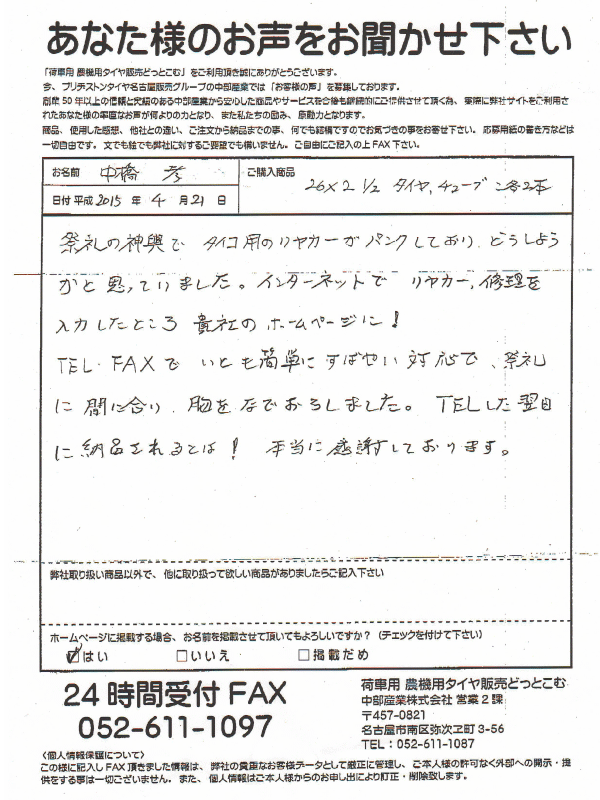 あなた様のお声をお聞かせ下さい
「荷車用 農機用タイヤ販売どっとこむ」をご利用頂き誠にありがとうございます。
今、ブリヂストンタイヤ名古屋販売グループの中部産業では「お客様の声」を募集しております。
創業50年以上の信頼と実績のある中部産業から安心した商品やサービスを今後も継続的にご提供させて頂く為、実際に弊社サイトをご利用さ
れたあなた様の率直なお声が何よりの力となり、また私たちの励み、原動力となります。
商品、使用した感想、他社との違い、ご注文から納品までの事、何でも結構ですのでお気づきの事をお寄せ下さい。応募用紙の書き方などは
一切自由です。文でも絵でも弊社に対するご要望でも構いません。ご自由にご記入の上FAX下さい。
お名前 中橋 孝
ご購入商品 26×2 1/2 タイヤ、チューブ 各2本
日付 平成 2015 年 4 月 21 日
祭礼の神輿で タイコ用のリヤカーがパンクしており、どうしよう
かと思っていました。インターネットで リヤカー、修理を
入力したところ 貴社のホームページに!
TEL・FAXで いとも簡単にすばやい対応で、祭礼
に間に合い、胸をなでおろしました。TELした翌日
に納品されるとは! 本当に感謝しております。
弊社取り扱い商品以外で、他に取り扱って欲しい商品がありましたらご記入下さい
ホームページに掲載する場合、お名前を掲載させて頂いてもよろしいですか?(チェックを付けて下さい)
☑はい □いいえ □掲載だめ
24時間受付FAX
052-611-1097
荷車用 農機用タイヤ販売どっとこむ
中部産業株式会社 営業2課
〒457-0821
名古屋市南区弥次ヱ町3-56
TEL:052-611-1087
〈個人情報保護について〉
この様に記入しFAX頂きました情報は、弊社の貴重なお客様データとして厳正に管理し、ご本人様の許可なく外部への開示・提
供をする事は一切ございません。また、個人情報はご本人様からのお申し出により訂正・削除致します。